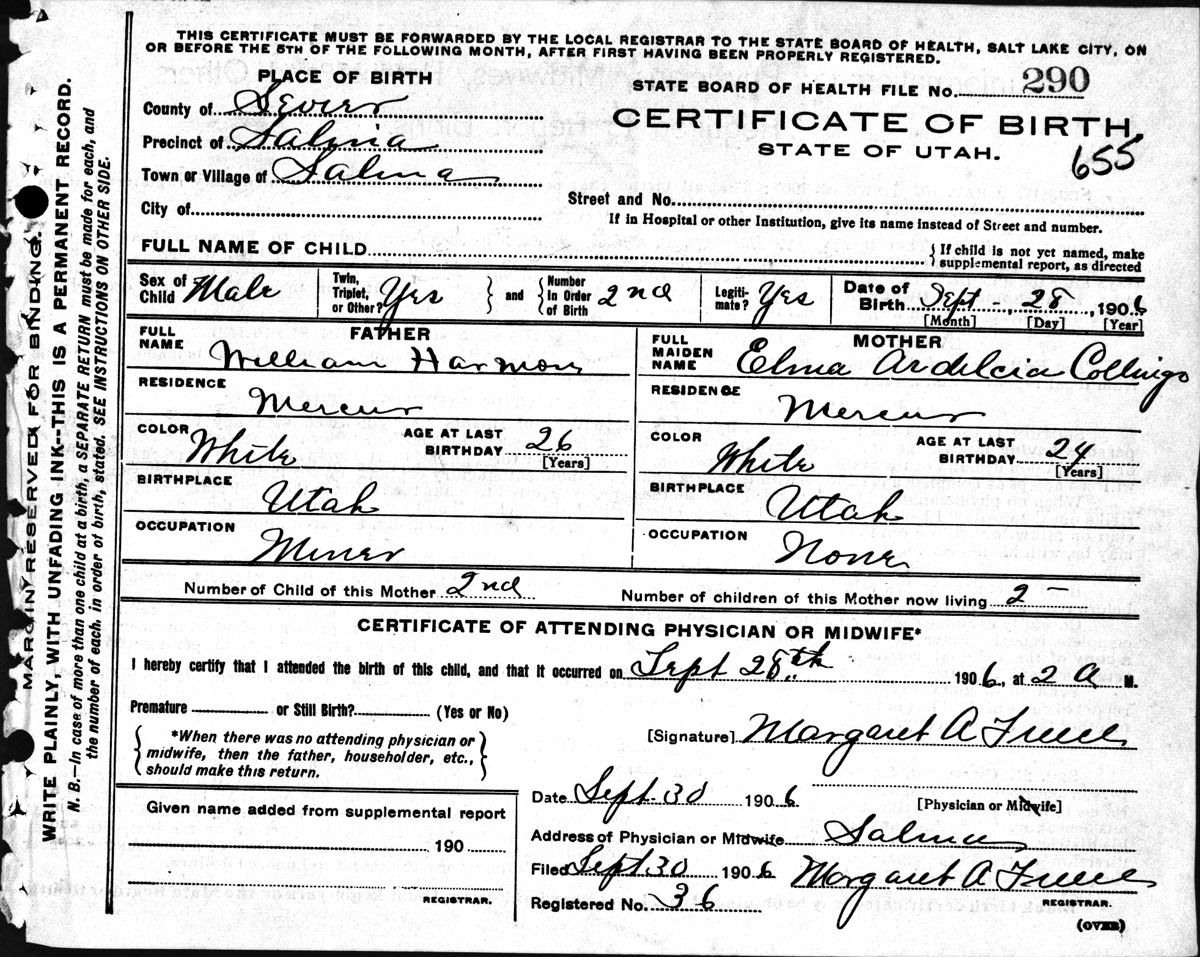 THIS CERTIFICATE MUST BE FORWARDED BY THE LOCAL REGISTRAR TO THE STATE BOARD OF HEALTH, SALT LAKE CITY, ON
OR BEFORE THE 5TH OF THE FOLLOWING MONTH, AFTER FIRST HAVING BEEN PROPERLY REGISTERED.
PLACE OF BIRTH
STATE BOARD OF HEALTH FILE No. 290
County of Sevier
CERTIFICATE OF BIRTH,
Precinct of Salina
STATE OF UTAH.
655
Town or Village of Salina
Street and No.
City of
If in Hospital or other Institution, give its name instead of Street and number.
FULL NAME OF CHILD
{ If child is not yet named, make
supplemental report, as directed
Sex of Child Male
Twin, Triplet, or Other? Yes } and { Number in Order of Birth 2nd
Legitimate? Yes
Date of Birth Sept 28, 1906
[Month] [Day] [Year]
FATHER
FULL NAME William Harmon
RESIDENCE
Mercur
COLOR White
AGE AT LAST BIRTHDAY 26
[Years]
BIRTHPLACE
Utah
OCCUPATION
Miner
MOTHER
FULL MAIDEN NAME Elma Ardelcia Collings
RESIDENCE
Mercur
COLOR White
AGE AT LAST BIRTHDAY 24
[Years]
BIRTHPLACE
Utah
OCCUPATION
None
Number of Child of this Mother 2nd
Number of children of this Mother now living 2
CERTIFICATE OF ATTENDING PHYSICIAN OR MIDWIFE*
I hereby certify that I attended the birth of this child, and that it occurred on Sept 28th 1906, at 2 A M.
Premature or Still Birth? (Yes or No)
{ *When there was no attending physician or
midwife, then the father, householder, etc.,
should make this return. }
[Signature] Margaret A
Date Sept. 30 1906
[Physician or Midwife]
Given name added from supplemental report
190
REGISTRAR.
Address of Physician or Midwife Salina
Filed Sept 30 1906 Margaret A
Registered No. 36
REGISTRAR.
(OVER)
MARGIN RESERVED FOR BINDING.
WRITE PLAINLY, WITH UNFADING INK--THIS IS A PERMANENT RECORD.
N. B.—In case of more than one child at a birth, a SEPARATE RETURN must be made for each, and
the number of each, in order of birth, stated. SEE INSTRUCTIONS ON OTHER SIDE.